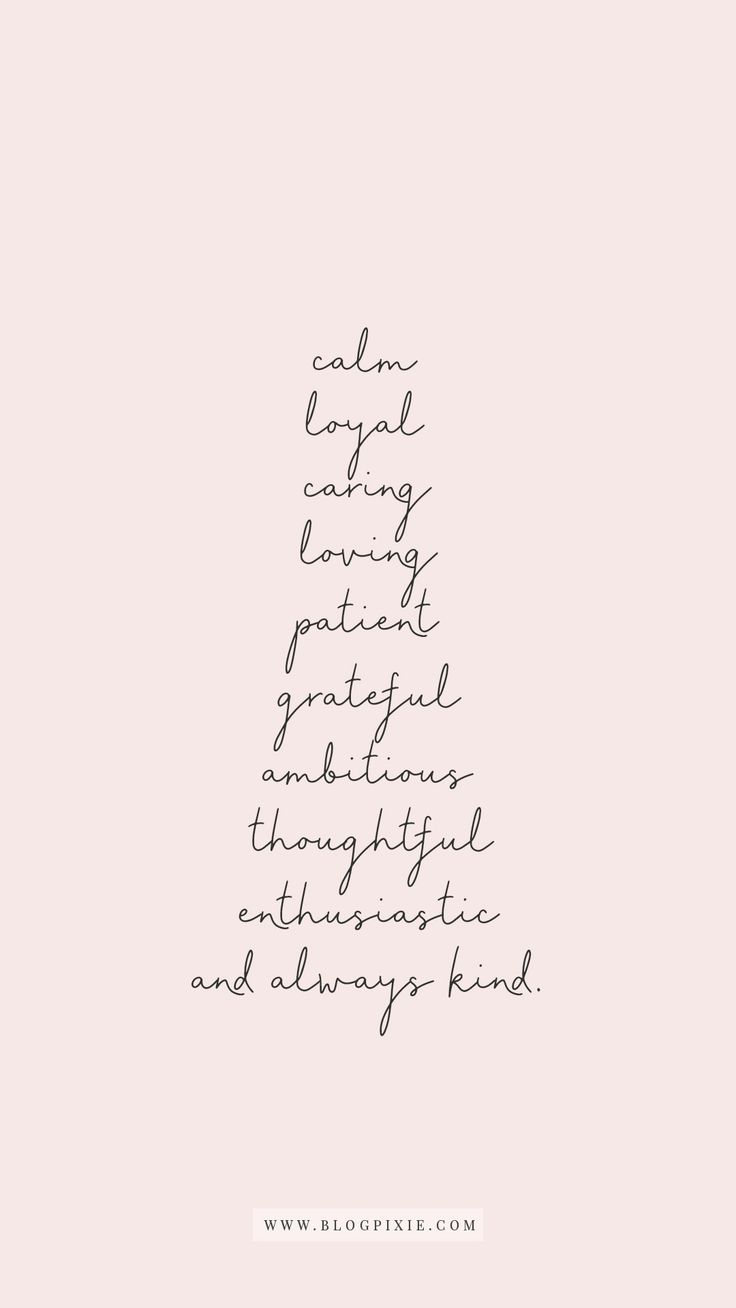 calm
loyal
caring
loving
patient
grateful
ambitious
thoughtful
enthusiastic
and always kind.
WWW.BLOGPIXIE.COM